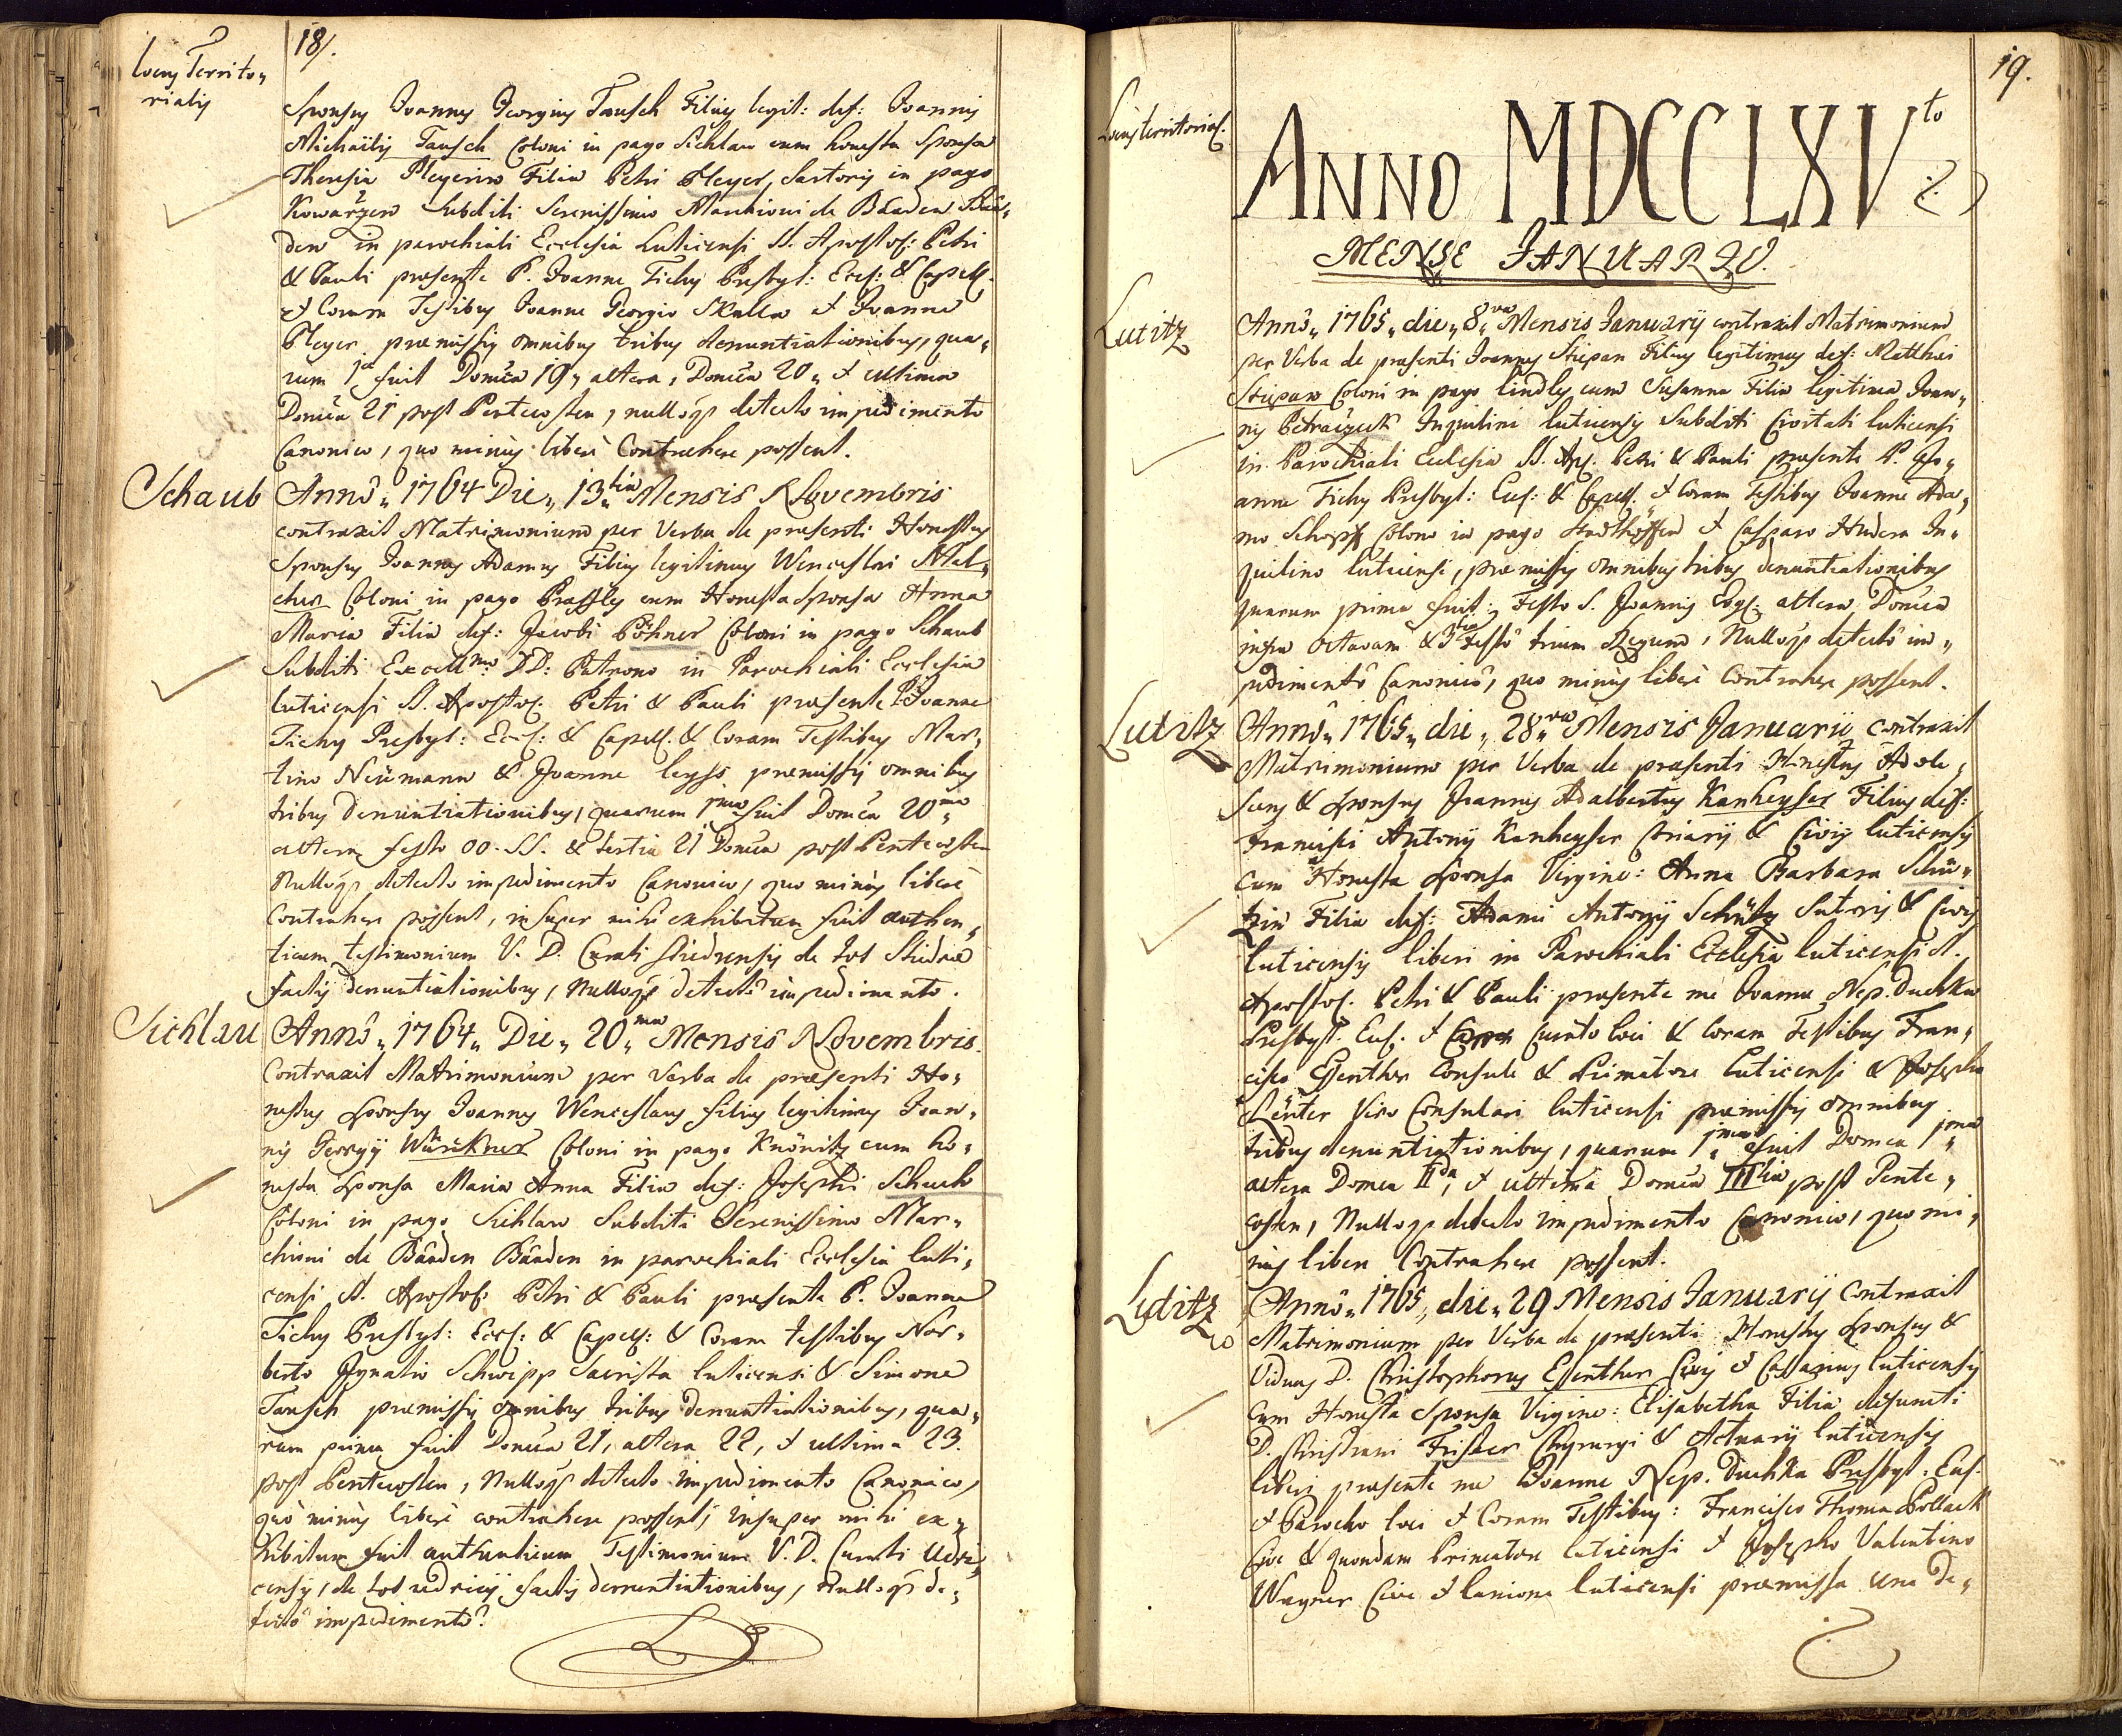 18/.
Locus Territo„
rialis
Sponsus Joannes Georgius Tausch Filius legit: def: Joannis
Michäelis Tausch Coloni in pago Sichlau cum honesta Sponsa
Theresia Pleyerin Filia Petri Pleyer, Sartoris in pago
Kowarzen Subditi Serenissimo Marchioni de Baaden Baa„
den in parochiali Ecclesia Luticensi SS. Apostol: Petri
& Pauli praesente P. Joanne Tichy Presbyt: Eccl: & Capell.
et Coram Testibus Joanne Georgio Skalla et Joanne
Pleyer praemissis omnibus tribus denuntiationibus, qua„
rum 1a fuit Domica 19, altera, Domica 20„ et ultima
Domica 21 post Pentecosten, nulloq3 detecto impedimento
Canonico, quo minus liberè Contrahere possent.
Schaub
Annô„ 1764 Die„ 13tia Mensis Novembris
contraxit Matrimonium per Verba de praesenti Honestus
Sponsus Joannes Adamus Filius legitimus Wenceslai Mel„
cher Coloni in pago Prassles cum Honesta Sponsa Anna
Maria Filia def: Jacobi Pöhner Coloni in pago Schaub
Subditi Excellmo DD: Patrono in Parochiali Ecclesia
luticensi SS. Apostol. Petri & Pauli praesente P. Joanne
Tichy Presbyt: Eccl: & Capell. & Coram Testibus Mar„
tino Neümann & Joanne praemissis omnibus
tribus Denuntiationibus, quarum 1ma fuit Domca 20ma
altera festo OO. SS. & tertia 21 Domica post Pentecosten
Nulloq3 detecto impedimento Canonico, quo minùs liberè
Contrahere possent, insuper mihi exhibitum fuit authen„
ticum testimonium V. D. Curati Stiedrensis de tot Stiedrae
factis denuntiationibus, Nulloq3 detectô impedimento.
Sichlau
Annô„ 1764„ Die„ 20ma Mensis Novembris.
Contraxit Matrimonium per Verba de praesenti Ho„
nestus Sponsus Joannes Wenceslaus filius legitimus Joan„
nis Georgij Würckner Coloni in pago Knönitz cum ho„
nesta Sponsa Maria Anna Filia def: Josephi Schuh
Coloni in pago Sichlau Subdita Serenissimo Mar„
chioni de Bâaden Bâaden in parochiali Ecclesia luti„
censi SS. Apostol: Petri & Pauli praesente P. Joanne
Tichy Presbyt: Eccl: & Capell: & Coram testibus Nor„
berto Ignatio Schwipp Sacrista luticensi & Simone
Tausch praemissis omnibus tribus Denuntiationibus, qua„
rum prima fuit Domica 21, altera 22, et ultima 23.
post Pentecosten, Nulloq3 detecto impedimento Canonico,
quò minùs liberè contrahere possent; insuper mihi ex„
hibitum fuit authenticum Testimonium V. D. Curati Udri„
censis, de tot udricij factis denuntiationibus, nulloq3 de„
tectô impedimentô.
19.
Locus territorial.
ANNO MDCCLXVto
MENSE JANUARIO.
Lutitz
Annô„ 1765„ die„ 8va Mensis Januarij contraxit Matrimonium
per Verba de praesenti Joannes Stiepan Filius legitimus def: Matthaei
Stiepan Coloni in pago Lindles cum Susanna Filia legitima Joan„
nis Inquilini luticensis Subditi Civitati luticensi
in Parochiali Ecclesia SS. Ap. Petri & Pauli praesente P. Jo„
anne Tichy Presbyt: Eccl: & Capell. et Coram Testibus Joanne Ada„
mo Schopff Colono in pago et Casparo Hudera In„
quilino luticensi, praemissis omnibus tribus denuntiationibus
quarum prima fuit: Festo S. Joannis Evgl: altera Domica
infra Octavam & 3tia Festô trium Regum, Nulloq3 detectô im„
pedimentô Canonicô, quo minùs liberè Contrahere possent.
Lutitz
Annô„ 1765„ die„ 28va Mensis Januarii contraxit
Matrimonium per Verba de praesenti Honestus Adole„
scens & Sponsus Joannes Adalbertus Kanheyser Filius def:
Francisci Antonij Kanheyser & Civis luticensis
cum Honesta Sponsa Virgine: Anna Barbara Schü„
tzin Filia def: Adami Antonij Schütz Sutoris & Civis
luticensis liberi in Parochiali Ecclesia luticensi SS.
Apostol. Petri & Pauli praesente me Joanne Nep. Duchka
Presbyt. Eccl. et Curato loci & Coram Testibus Fran„
cisco Esenther Consule & Primatore luticensi & Josepho
Lenter Viro Consulari luticensi praemissis omnibus
tribus denuntiationibus, quarum 1ma fuit Domca 1ma
altera Domca IIda, et ultima Domca IIItia post Pente„
costen, Nulloq3 detecto impedimento Canonico, quo mi„
nus libere Contrahere possent.
Luditz
Annô„ 1765, die„ 29 Mensis Januarij contraxit
Matrimonium per Verba de praesenti Honestus Sponsus &
Viduus D. Christophorus Esenther Civis et luticensis
Cum Honesta Sponsa Virgine: Elisabetha Filia defuncti
D. Christiani Frister Chyrurgi & Actuarij luticensis
liberi praesente me Joanne Nep. Duchka Presbyt. Eccl.
et Parocho loci et Coram Testibus: Francisco Thoma Pollack
Cive & quondam Primatore luticensi et Josepho Valentino
Wagner Cive et lanione luticensi praemissa una De„